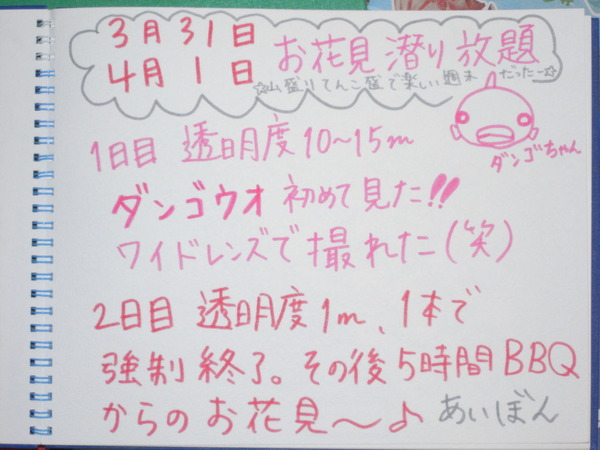 3月31日
4月1日
お花見潜り放題
☆山盛りてんこ盛で楽しい週末だったー☆
ダンゴちゃん
1日目 透明度10~15m
ダンゴウオ 初めて見た!!
ワイドレンズで撮れた(笑)
2日目 透明度1m、1本で
強制終了。その後5時間BBQ
からのお花見〜♪ あいぼん